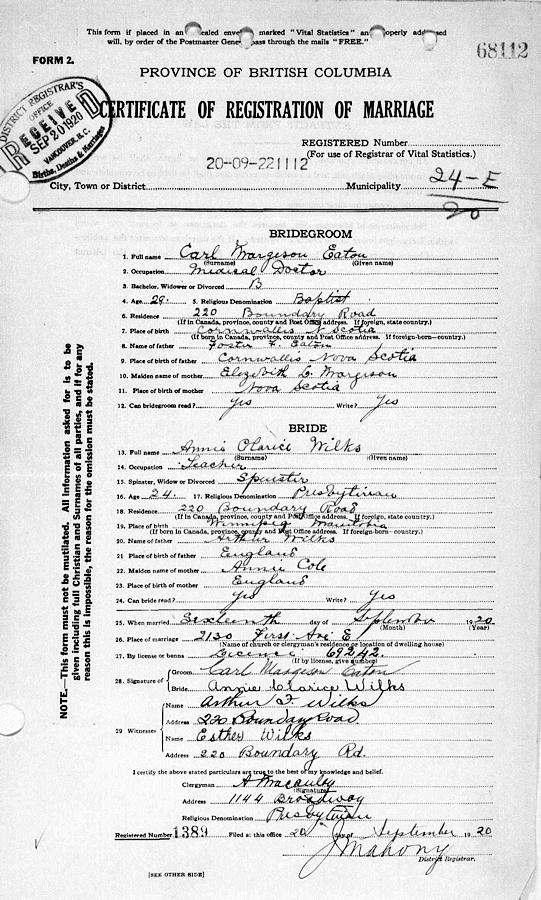 This form if placed in an ealed enve marked "Vital Statistics" an operly add sed
will, by order of the Postmaster Gene pass through the mails "FREE."
FORM 2.
68112
PROVINCE OF BRITISH COLUMBIA
CERTIFICATE OF REGISTRATION OF MARRIAGE
DISTRICT REGISTRAR'S
OFFICE
RECEIVED
SEP 20 1920
VANCOUVER, B.C.
Births, Deaths & Marriages
REGISTERED Number
(For use of Registrar of Vital Statistics.)
20-09-221112
City, Town or District Municipality 24-E
20
BRIDEGROOM
1. Full name Carl Margeson Eaton
(Surname) (Given name)
2. Occupation Medical Doctor
3. Bachelor, Widower or Divorced B
4. Age 29. 5. Religious Denomination Baptist
6. Residence 220 Boundary Road
(If in Canada, province, county and Post Office address. If foreign, state country.)
7. Place of birth Cornwallis N. Scotia
(If born in Canada, province, county and Post Office address. If foreign-born—country.)
8. Name of father Foster F. Eaton
9. Place of birth of father Cornwallis Nova Scotia
10. Maiden name of mother Elozibith L. Margeson
11. Place of birth of mother Nova Scotia
12. Can bridegroom read? Yes Write? Yes
BRIDE
13. Full name Annie Clarice Wilks
(Surname) (Given name)
14. Occupation Teacher
15. Spinster, Widow or Divorced Spinster
16. Age 24. 17. Religious Denomination Presbyterian
18. Residence 220 Boundary Road
(If in Canada, province, county and Post Office address. If foreign, state country.)
19. Place of birth Winnipeg Manitoba
(If born in Canada, province, county and Post Office address. If foreign-born—country.)
20. Name of father Arthur Wilks
21. Place of birth of father England
22. Maiden name of mother Annie Cole
23. Place of birth of mother England
24. Can bride read? Yes Write? Yes
25. When married Sixteenth day of September 1920
(Month) (Year)
26. Place of marriage 2130 First Ave E
(Name of church or clergyman's residence or location of dwelling house)
27. By license or banns Licence 69242.
(If by license, give number)
28. Signature of
Groom Carl Margeson Eaton
Bride Annie Clarice Wilks
29 Witnesses
Name Arthur F. Wilks
Address 220 Boundary Road
Name Esther Wilks
Address 220 Boundary Rd.
I certify the above stated particulars are true to the best of my knowledge and belief.
Clergyman A Macaulay
(Signature)
Address 1144 Broadway
Religious Denomination Presbyterian
Registered Number 1389 Filed at this office 20 day of September 1920
J Mahony
District Registrar.
[SEE OTHER SIDE]
NOTE.—This form must not be mutilated. All information asked for is to be
given including full Christian and Surnames of all parties, and if for any
reason this is impossible, the reason for the omission must be stated.